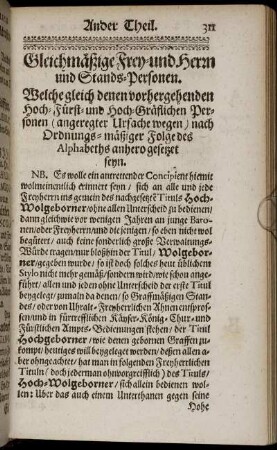 Ander Theil. 311
Gleichmäßige Frey- und Herrn
und Stands-Personen.
Welche gleich denen vorhergehenden
Hoch-Fürst- und Hoch-Gräflichen Per-
sonen / angeregter Ursache wegen / nach
Ordnungs-mäßiger Folge des
Alphabeths anhero gesetzet
seyn.
NB. Es wolle ein antrettender Concipient hiemit
wolmeinentlich erinnert seyn / sich an alle und jede
Freyherrn ins gemein des nachgesetzte Tituls Hoch-
Wolgeborner / ohne allen Unterscheid zu bedienen /
dann gleichwie vor wenigen Jahren an junge Baro-
nen / oder Freyherrn und die jenigen / so eben nicht wol
begütert / auch keine sonderlich große Verwaltungs-
Würde tragen / nur bloßhin der Titul / Wolgebor-
ner / gegeben wurde / so ist doch solches heut üblichem
Stylo nicht mehr gemäß / sondern wird / wie schon ange-
führet / allen und jeden ohne Unterscheid der erste Titul
beygelegt / zumaln da denen / so Graffmäßigen Stan-
des / oder von Uhralt-Freyherrlichen Ahnen entspros-
sen / und in fürtrefflichen Käyser-König-Chur- und
Fürstlichen Ampts-Bedienungen stehen / der Titul
Hochgeborner / wie denen gebornen Graffen zu-
kompt / heutiges will beygeleget werden / dessen allen a-
ber ohngeachtet / hat man in folgenden Freyherrlichen
Tituln / doch jederman ohnvorgreifflich) des Tituls /
Hoch-Wolgeborner / sich allein bedienen wol-
len: Uber das auch einem Unterthanen gegen seine
Hohe